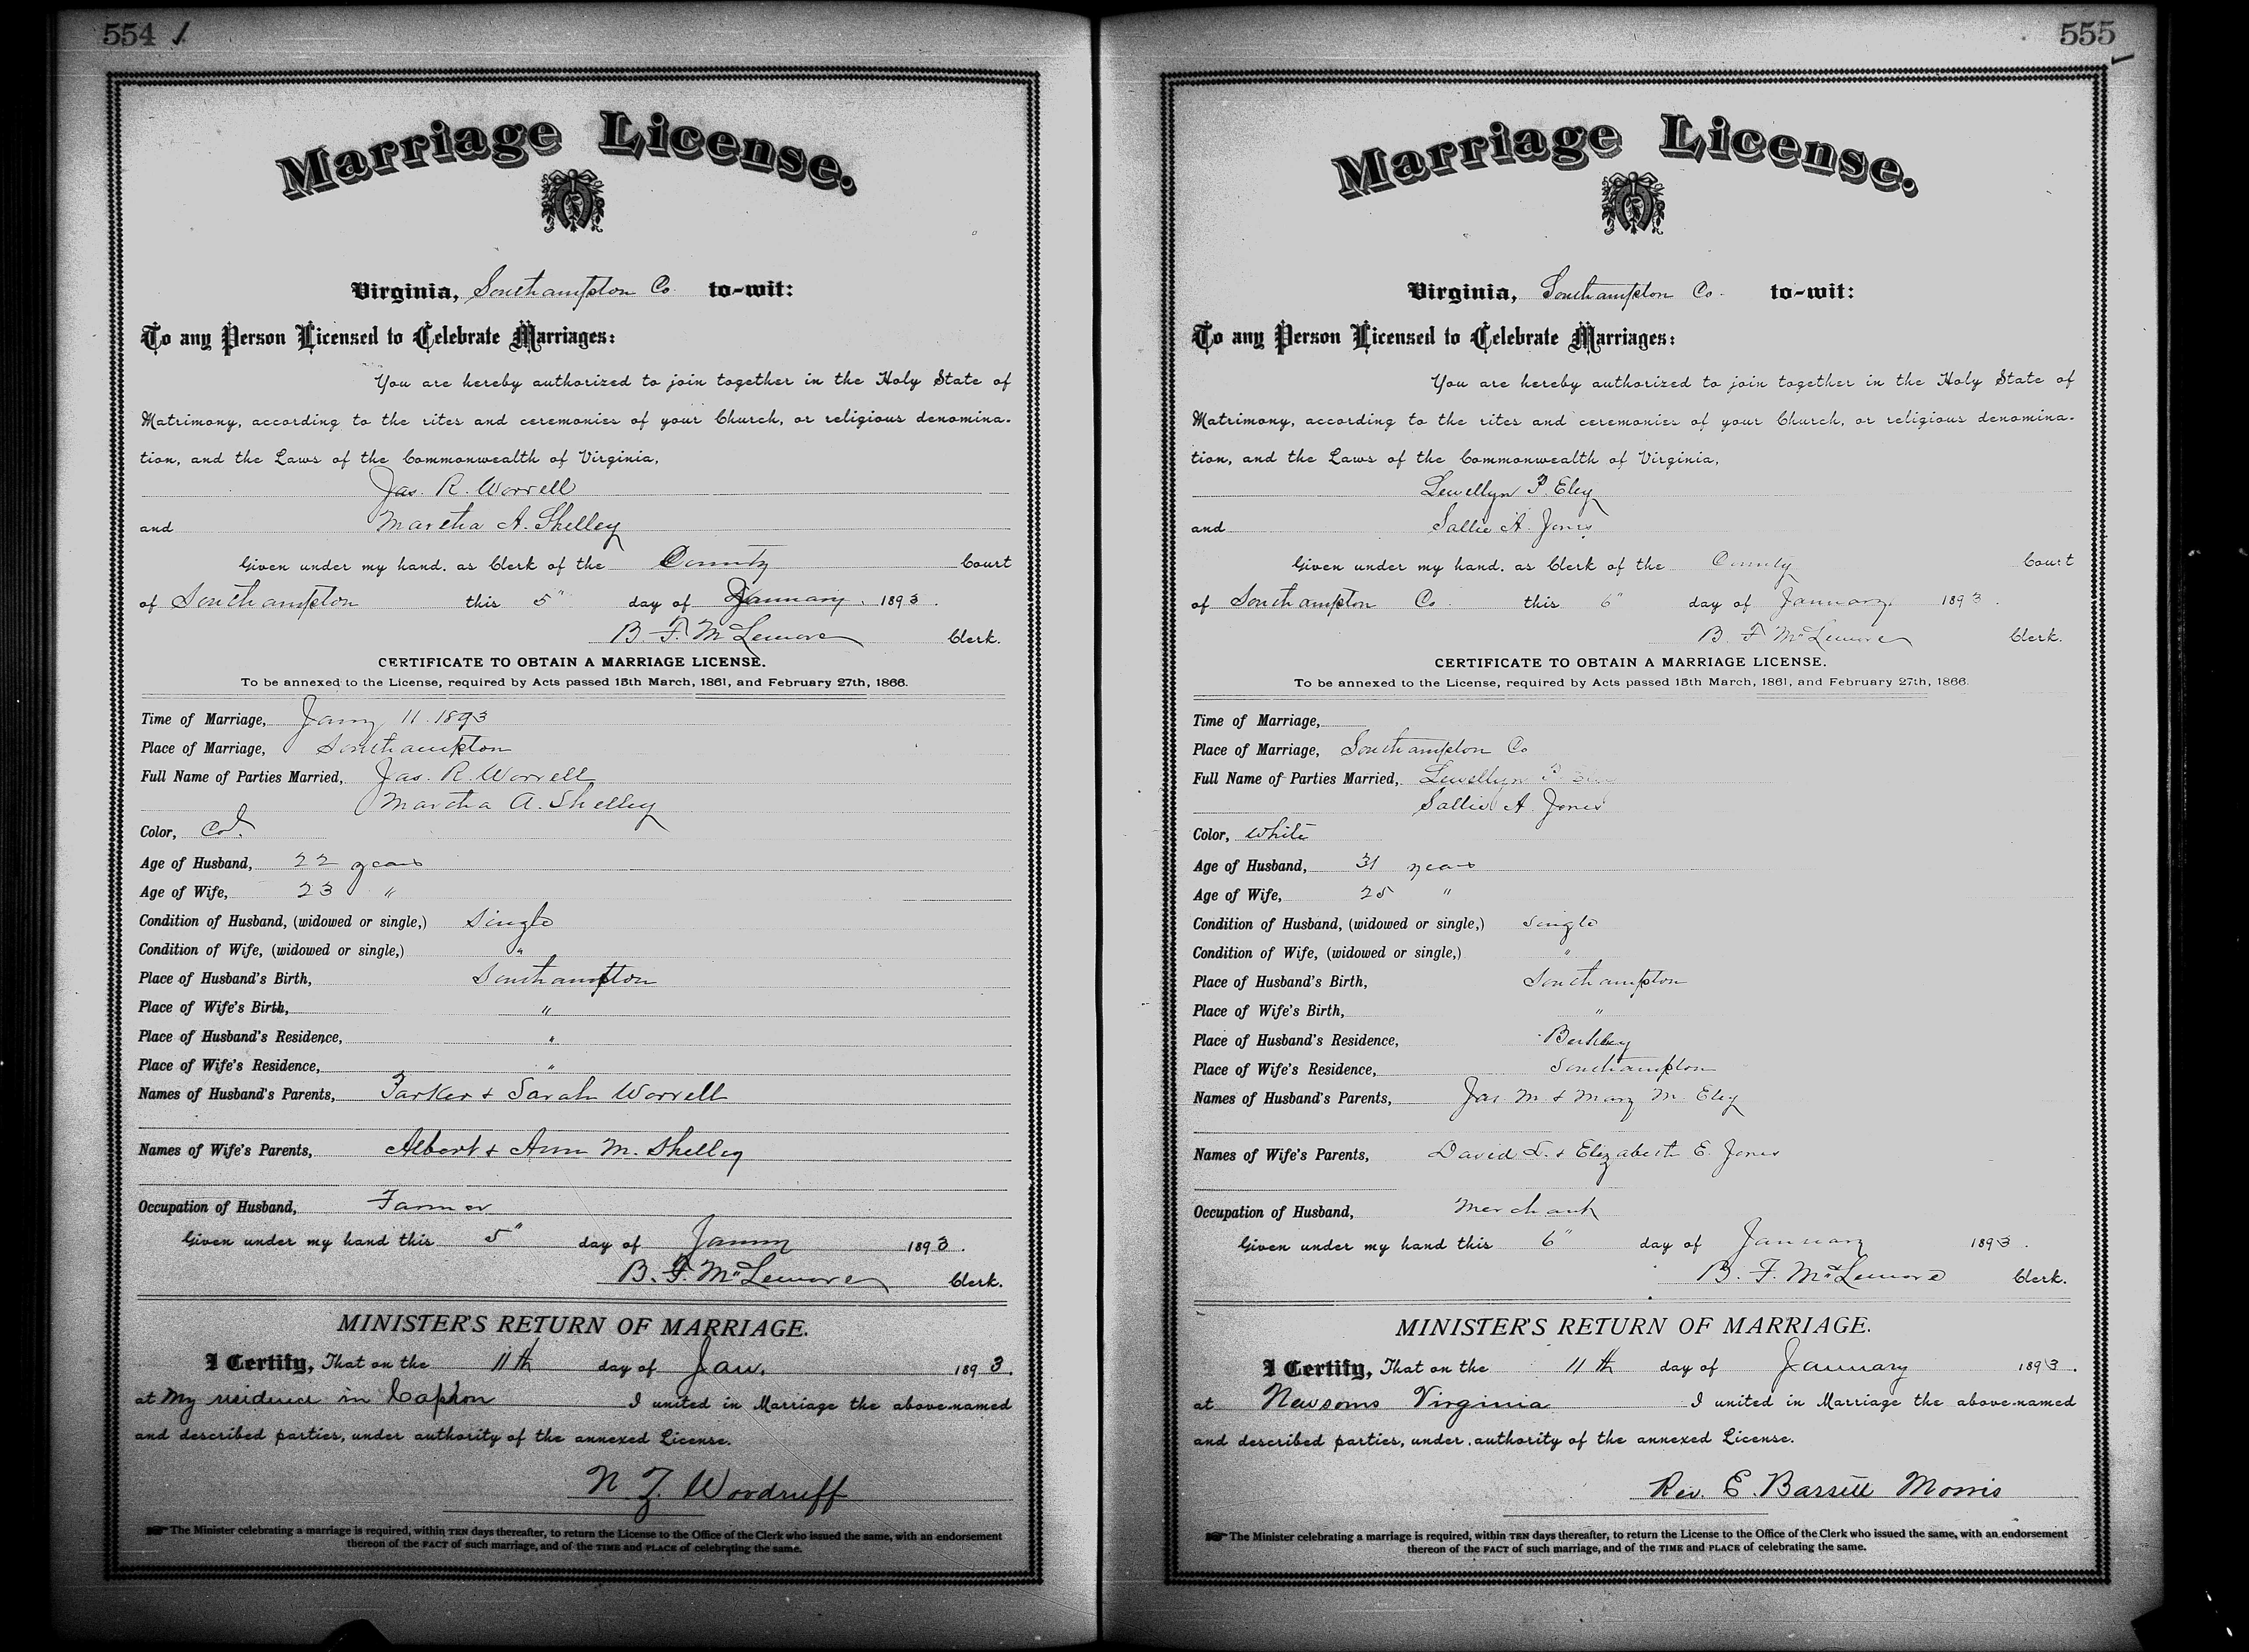 554
Marriage License.
Virginia, Southampton Co. to-wit:
To any Person Licensed to Celebrate Marriages:
You are hereby authorized to join together in the Holy State of
Matrimony, according to the rites and ceremonies of your Church, or religious denomina-
tion, and the Laws of the Commonwealth of Virginia,
Jas. R. Worrell
and Martha A. Shelley
Given under my hand, as Clerk of the County Court
of Southampton this 5" day of January, 1893.
B. F. McLemore Clerk.
CERTIFICATE TO OBTAIN A MARRIAGE LICENSE.
To be annexed to the License, required by Acts passed 15th March, 1861, and February 27th, 1866.
Time of Marriage, Jany 11. 1893
Place of Marriage, Southampton
Full Name of Parties Married, Jas. R. Worrell
Martha A. Shelley
Color, Col.
Age of Husband, 22 years
Age of Wife, 23 "
Condition of Husband, (widowed or single,) Single
Condition of Wife, (widowed or single,) "
Place of Husband's Birth, Southampton
Place of Wife's Birth, "
Place of Husband's Residence, "
Place of Wife's Residence, "
Names of Husband's Parents, Parker + Sarah Worrell
Names of Wife's Parents, Albert + Ann M. Shelley
Occupation of Husband, Farmer
Given under my hand this 5" day of Jany 1893.
B. F. McLemore Clerk.
MINISTER'S RETURN OF MARRIAGE.
I Certify, That on the 11th day of Jan. 1893.
at My residence in Capron I united in Marriage the above-named
and described parties, under authority of the annexed License.
N. Z. Woodruff
The Minister celebrating a marriage is required, within TEN days thereafter, to return the License to the Office of the Clerk who issued the same, with an endorsement
thereon of the FACT of such marriage, and of the TIME and PLACE of celebrating the same.
555
Marriage License.
Virginia, Southampton Co. to-wit:
To any Person Licensed to Celebrate Marriages:
You are hereby authorized to join together in the Holy State of
Matrimony, according to the rites and ceremonies of your Church, or religious denomina-
tion, and the Laws of the Commonwealth of Virginia,
Lewellyn P. Eley
and Sallie A. Jones
Given under my hand, as Clerk of the County Court
of Southampton Co. this 6" day of January. 1893.
B. F. McLemore Clerk.
CERTIFICATE TO OBTAIN A MARRIAGE LICENSE.
To be annexed to the License, required by Acts passed 15th March, 1861, and February 27th, 1866.
Time of Marriage,
Place of Marriage, Southampton Co
Full Name of Parties Married, Lewellyn P.
Sallie A. Jones
Color, White
Age of Husband, 31 years
Age of Wife, 25 "
Condition of Husband, (widowed or single,) Single
Condition of Wife, (widowed or single,) "
Place of Husband's Birth, Southampton
Place of Wife's Birth, "
Place of Husband's Residence, Berkley
Place of Wife's Residence, Southampton
Names of Husband's Parents, Jas. M + Mary M. Eley
Names of Wife's Parents, David L. + Elizabeth E. Jones
Occupation of Husband, Merchant
Given under my hand this 6" day of January 1893.
B. F. McLemore Clerk.
MINISTER'S RETURN OF MARRIAGE.
I Certify, That on the 11th day of January 1893.
at Newsoms Virginia I united in Marriage the above-named
and described parties, under authority of the annexed License.
Rev. E. Barrett Morris
The Minister celebrating a marriage is required, within TEN days thereafter, to return the License to the Office of the Clerk who issued the same, with an endorsement
thereon of the FACT of such marriage, and of the TIME and PLACE of celebrating the same.